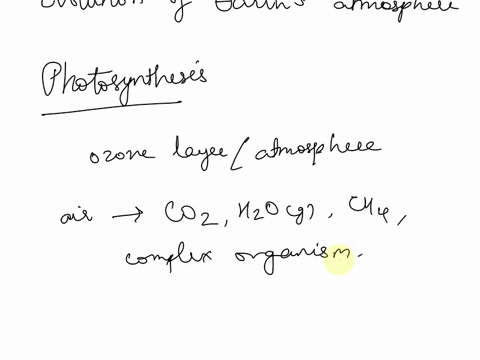 Evolution of Earth's atmosphere
Photosynthesis
ozone layer / atmosphere
air → CO2, H2O(g), CH4,
complex organism.